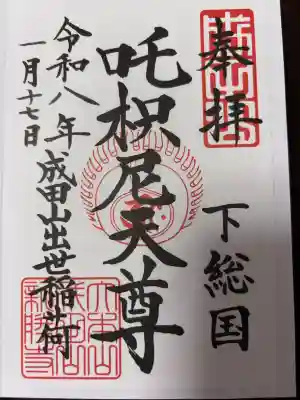 奉拝
下総国
吒枳尼天尊
成田山出世稲荷
令和八年
一月十七日